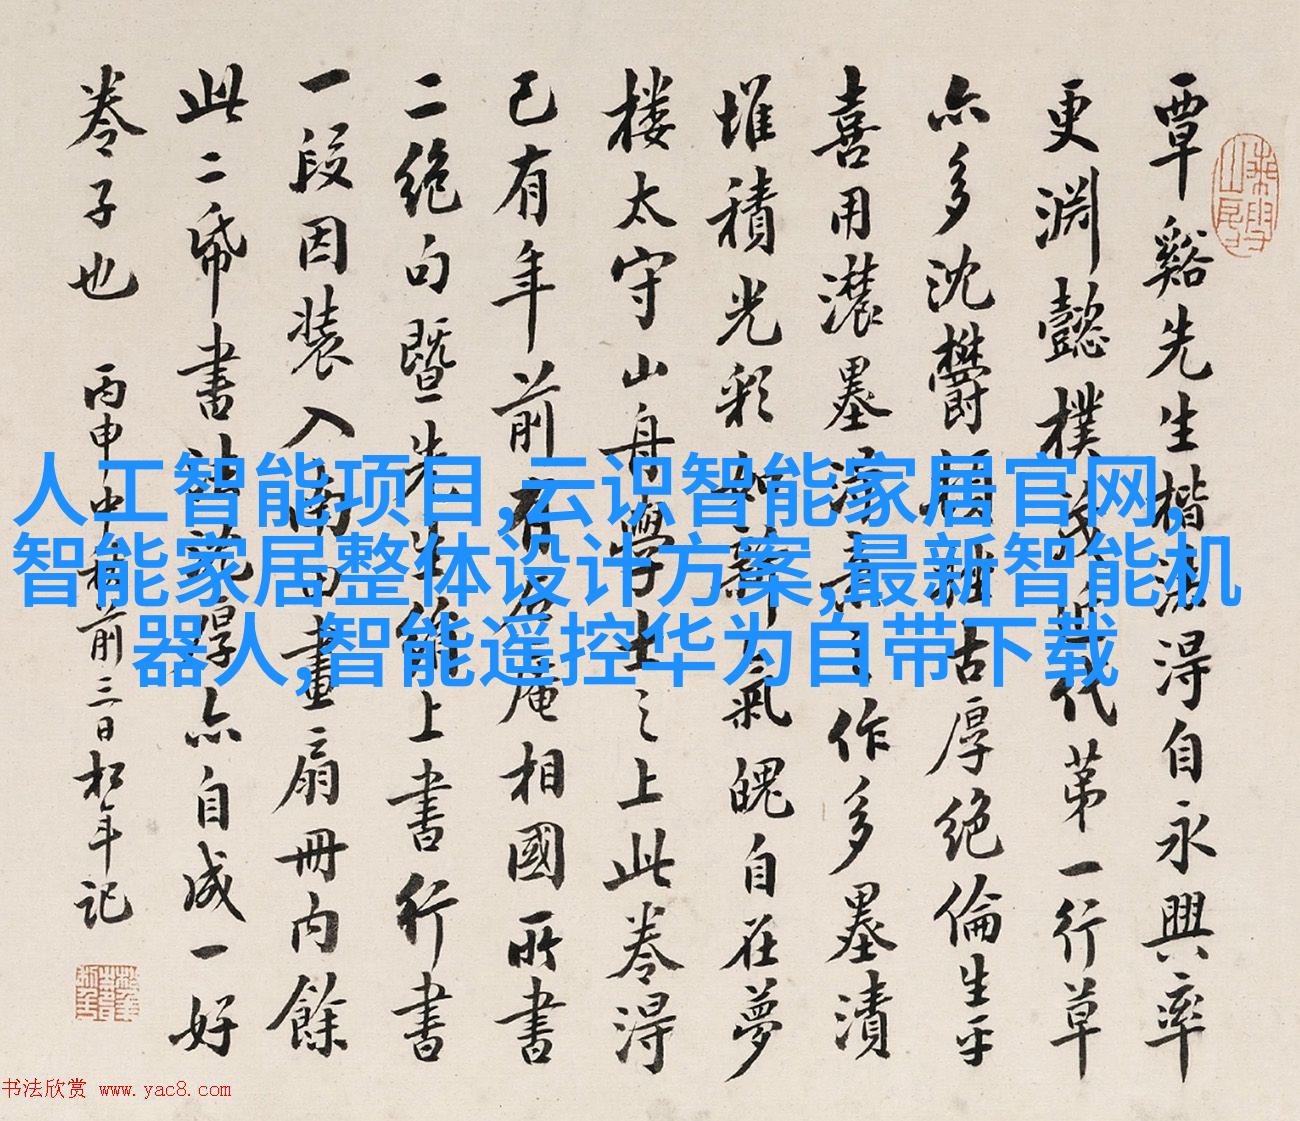 覃谿先生楷法得自永興率
更淵懿樸茂近代第一行草
亦多沈欝頓挫古厚絶倫生平
喜用濃墨淳熹作多墨漬
堆積光彩如新氣魄自在夢
樓太守山舟學士之上此卷得
已有年前有庵相國所書
二絶句暨先生能上書行書
一段因装入南田畫扇冊内餘
此二帋書神完得亦自成一好
卷子也
丙申中秋前三日松年記
人工智能项目,云识智能家居官网,
智能家居整体设计方案,最新智能机
器人,智能遥控华为自带下载
书法欣赏 www.yac8.com